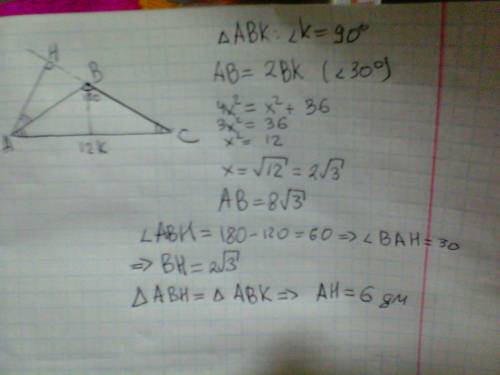 H
B
120
A
C
12 K
△ABK: ∠K = 90°
AB = 2BK (∠30°)
4x² = x² + 36
3x² = 36
x² = 12
x = √12 = 2√3
AB = 8√3
∠ABH = 180 - 120 = 60 => ∠BAH = 30
=> BH = 2√3
△ABH = △ABK => AH = 6 дм